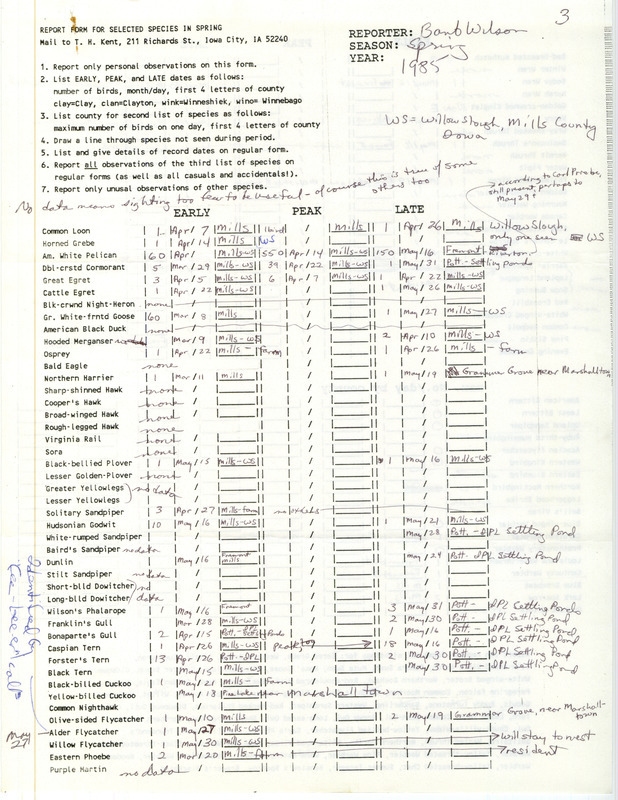 3
REPORT FORM FOR SELECTED SPECIES IN SPRING
Mail to T. H. Kent, 211 Richards St., Iowa City, IA 52240
REPORTER: Barb Wilson
SEASON: Spring
YEAR: 1985
1. Report only personal observations on this form.
2. List EARLY, PEAK, and LATE dates as follows:
number of birds, month/day, first 4 letters of county
clay=Clay, clan=Clayton, wink=Winneshiek, wino= Winnebago
3. List county for second list of species as follows:
maximum number of birds on one day, first 4 letters of county
4. Draw a line through species not seen during period.
5. List and give details of record dates on regular form.
6. Report all observations of the third list of species on
regular forms (as well as all casuals and accidentals!).
7. Report only unusual observations of other species.
WS = Willow Slough, Mills County
Iowa
No data means sighting too few to be useful - of course this is true of some
others too
according to Carl Priebe,
still present, perhaps to
May 29?
EARLY PEAK LATE
Common Loon 1 Apr/7 Mills 1 bird / Mills 1 Apr/26 Mills Willow Slough,
only one seen WS
Horned Grebe 1 Apr/14 Mills WS
Am. White Pelican 60 Apr/ Mills-WS 550 Apr/14 Mills-WS 150 May/16 Fremont
Dbl-crstd Cormorant 5 Mar/29 Mills-WS 39 Apr/22 Mills-WS 1 May/31 Pott-Settling Ponds
Great Egret 3 Apr/5 Mills-WS 6 Apr/7 Mills-WS 1 Apr/22 Mills-WS
Cattle Egret 1 Apr/22 Mills-WS / May/26 Mills-WS
Blk-crwnd Night-Heron none
Gr. White-frntd Goose 60 Mar/8 Mills / 1 May/27 Mills-WS
American Black Duck none
Hooded Merganser Mar/9 Mills-WS / 2 Apr/10 Mills-WS
Osprey 1 Apr/22 Mills-Farm / 1 Apr/26 Mills-farm
Bald Eagle none
Northern Harrier 1 Mar/11 Mills / 1 May/19 Grove near Marshalltown
Sharp-shinned Hawk none
Cooper's Hawk none
Broad-winged Hawk none
Rough-legged Hawk none
Virginia Rail none
Sora none
Black-bellied Plover 1 May/15 Mills-WS / 1 May/16 Mills-WS
Lesser Golden-Plover none
Greater Yellowlegs no data
Lesser Yellowlegs
Solitary Sandpiper 3 Apr/27 Mills-farm no peaks
Hudsonian Godwit 10 May/16 Mills-WS / 1 May/21 Mills-WS
White-rumped Sandpiper / May/28 Pott.-IPL Settling Pond
Baird's Sandpiper no data
Dunlin May/16 Fremont Mills / May/24 Pott. IPL Settling Pond
Stilt Sandpiper no data
Short-blld Dowitcher no
Long-blld Dowitcher data
Wilson's Phalarope 1 May/16 Fremont / 3 May/31 Pott- IPL Settling Ponds
Franklin's Gull Mar/28 Mills-WS / 2 May/30 Pott- IPL Settling Pond
Bonaparte's Gull 2 Apr/15 Pott.-Settl Ponds / 1 May/16 Pott.- IPL Settling Pond
Caspian Tern 1 Apr/26 Mills-WS peak, too 18 May/16 Pott- IPL Settling Pond
Forster's Tern 13 Apr/26 Pott.-IPL / 2 May/30 Pott.- IPL Settling Pond
Black Tern May/15 Mills-WS / May/30 Pott.- IPL Settling Pond
Black-billed Cuckoo 1 May/21 Mills-Farm
Yellow-billed Cuckoo May/18 near Marshalltown
Common Nighthawk
Olive-sided Flycatcher 1 May/10 Mills / 2 May/19 Grammer Grove, near Marshall-
town
Alder Flycatcher 1 May/27 Mills-WS
Willow Flycatcher 1 May/30 Mills-WS will stay to nest
Eastern Phoebe 2 Mar/20 Mills-farm resident
Purple Martin no data
Identified by
call
May
27